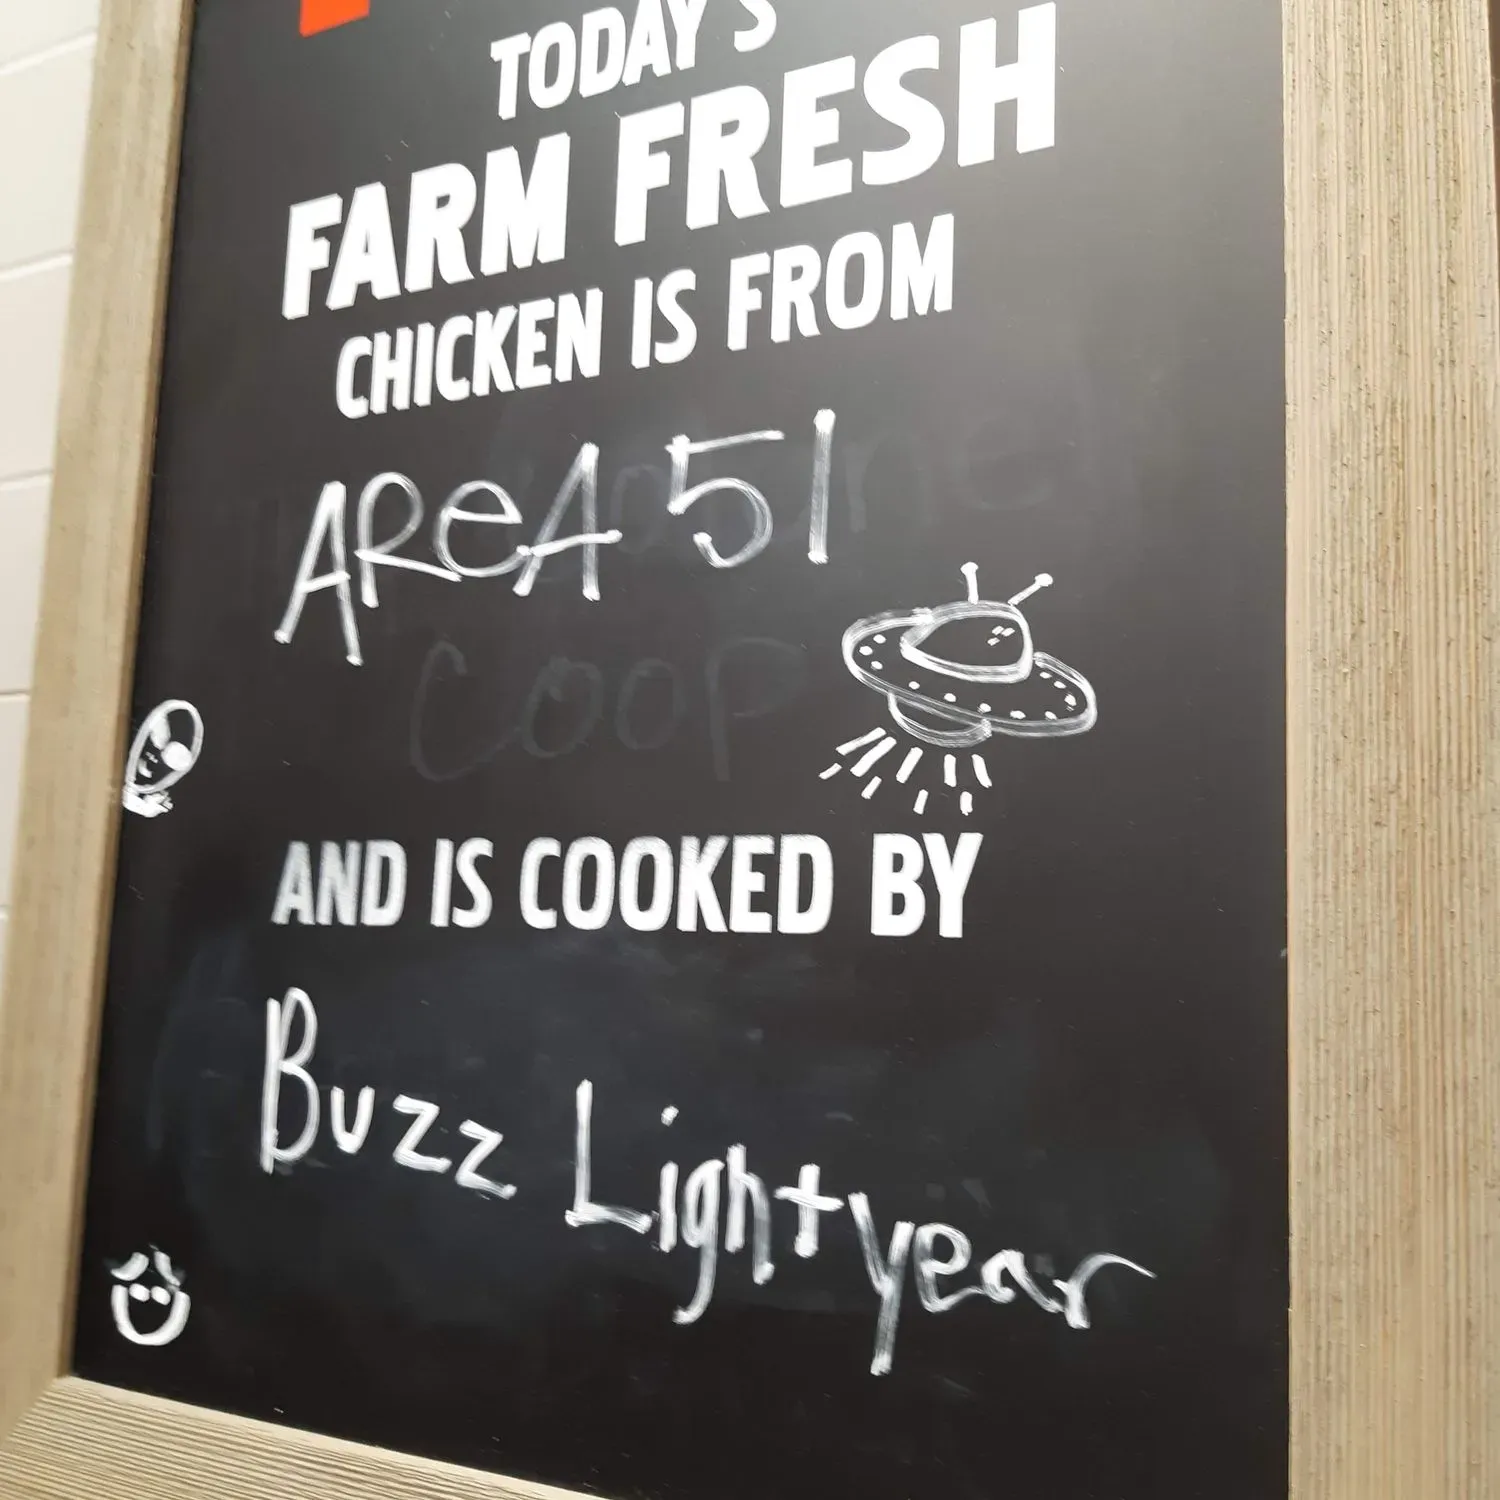 TODAY'S
FARM FRESH
CHICKEN IS FROM
AReA 51
COOP
AND IS COOKED BY
Buzz Lightyear